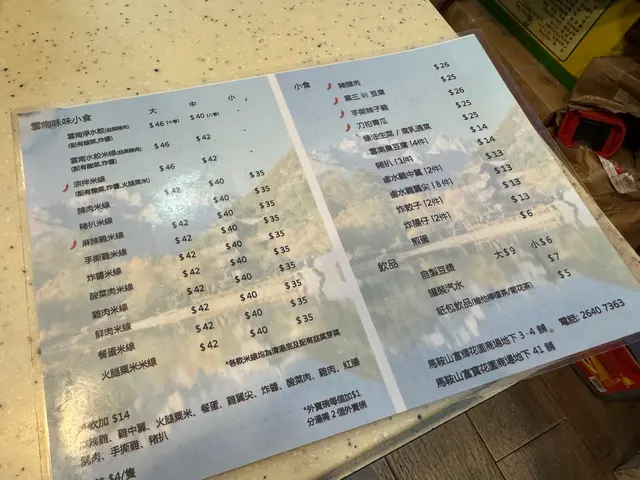 雲南味味小食 大 中 小
雲南淨水餃(韮菜豬肉) $46(十隻) $40(八隻)
(配有酸菜,炸醬)
雲南水餃米線(韮菜豬肉) $46 $42
(配有酸菜,炸醬)
涼拌米線 $46 $42
(配有酸菜,炸醬,火腿粟米)
腩肉米線 $42 $40 $35
豬扒米線 $42 $40 $35
麻辣雞米線 $42 $40 $35
手撕雞米線 $42 $40 $35
炸醬米線 $42 $40 $35
酸菜肉米線 $42 $40 $35
雞肉米線 $42 $40 $35
鮮肉米線 $42 $40 $35
餐蛋米線 $42 $40 $35
火腿粟米米線 $42 $40 $35
*各款米線均為清湯底及配有韮菜芽菜
加 $14
辣雞、雞中翼、火腿粟米、餐蛋、雞翼尖、炸醬、酸菜肉、雞肉、紅腸
腩肉、手撕雞、豬扒
$4/隻
*外賣碗每個加$1
分湯需2個外賣碗
小食
豬頭肉 $26
黃三 豆腐 $25
手撕辣子雞 $26
刀拍青瓜 $25
蠔油生菜 / 腐乳通菜 $25
雲南臭豆腐 (4件) $14
豬扒 (1件) $14
鹵水雞中翼 (2件) $13
鹵水雞翼尖 (8件) $13
炸餃子 (2件) $13
炸腸仔 (2件) $13
煎蛋 $6
飲品
自製豆漿 大$9 小$6
罐裝汽水 $7
紙包飲品(維他檸檬茶/菊花茶) $5
馬鞍山富寶花園商場地下 3-4 舖。電話: 2640 7363
馬鞍山富寶花園商場地下 41 舖